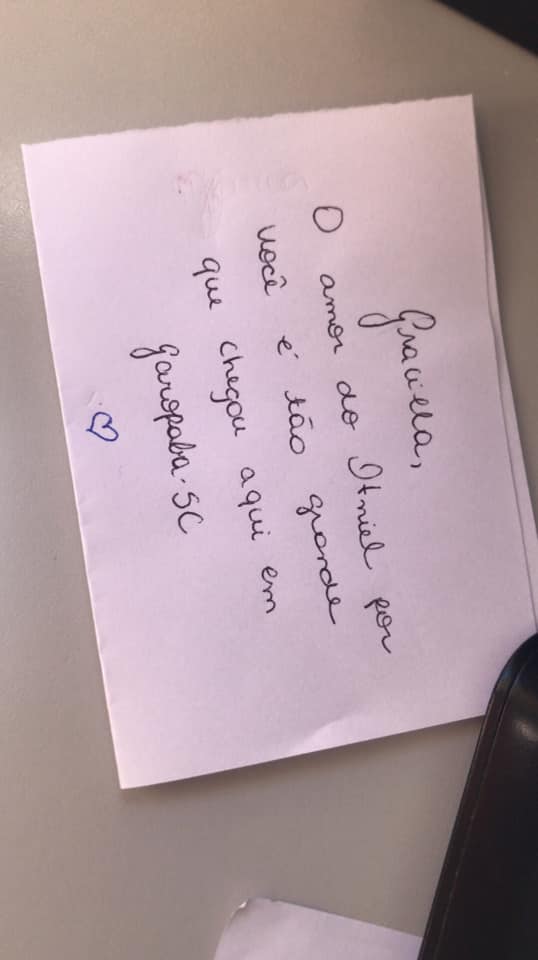 Graciella,
O amor do Itniel por
você é tão grande
que chegou aqui em
Garopaba-SC